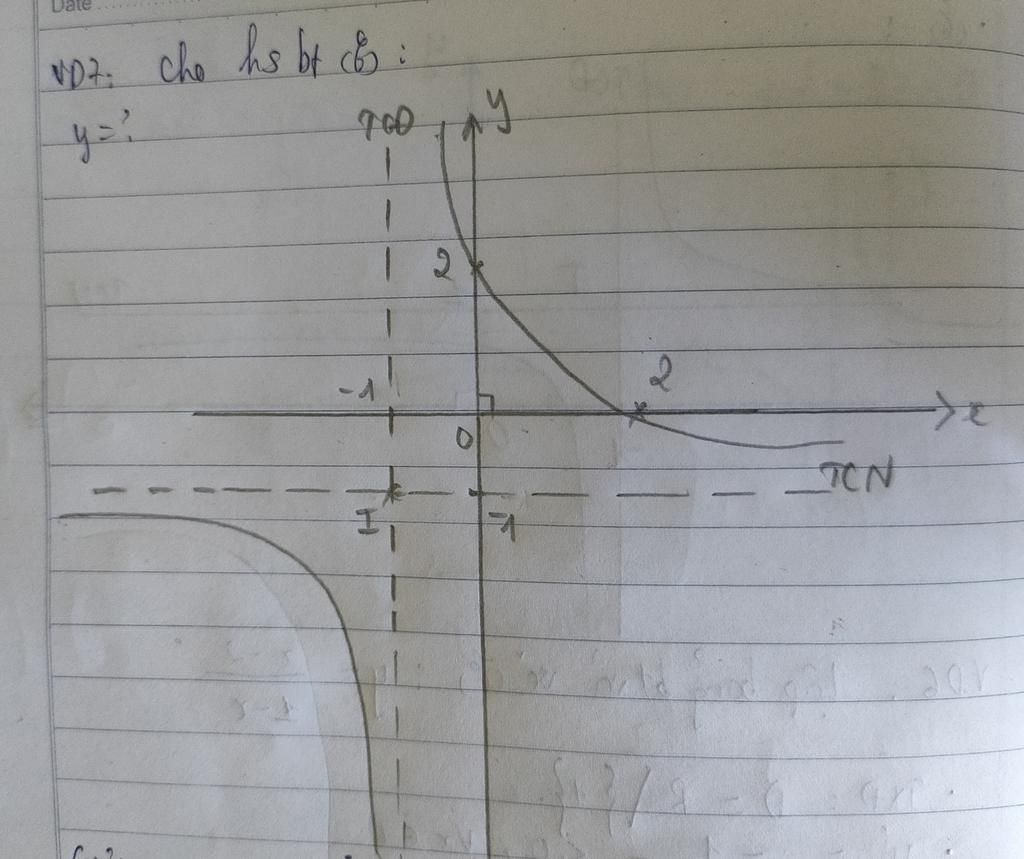 Date
VD7: Cho hs bt (C):
y=?
TCD
y
2
-1
2
0
x
TCN
I
-1